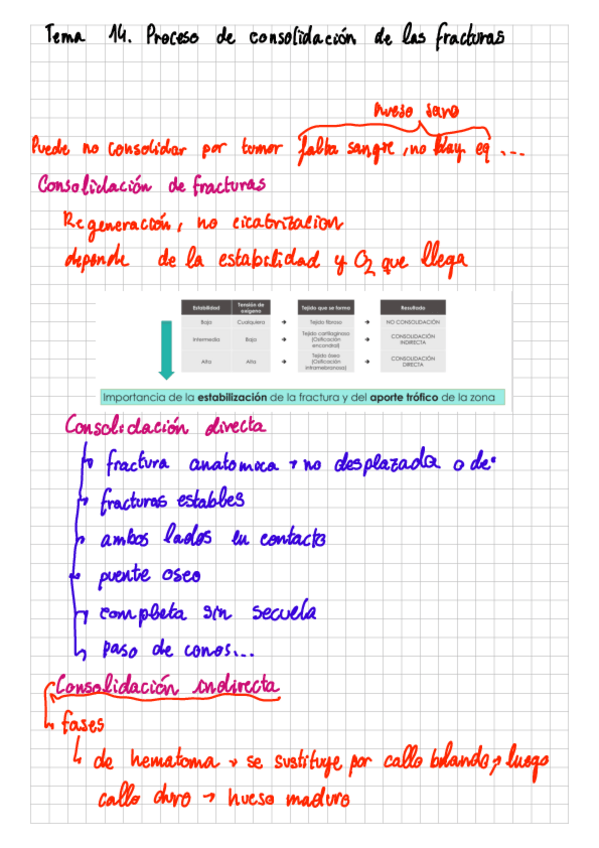 Tema 14. Proceso de consolidación de las fracturas
hueso sano
Puede no consolidar por tumor falta sangre, no hay eq ...
Consolidación de fracturas
Regeneración, no cicatrizacion
depende de la estabilidad y O2 que llega
Estabilidad Tensión de oxígeno Tejido que se forma Resultado
Baja Cualquiera → Tejido fibroso → NO CONSOLIDACIÓN
Intermedia Baja → Tejido cartilaginoso (Osificación encondral) → CONSOLIDACIÓN INDIRECTA
Alta Alta → Tejido óseo (Osificación intramembranosa) → CONSOLIDACIÓN DIRECTA
Importancia de la estabilización de la fractura y del aporte trófico de la zona
Consolidación directa
fractura anatomica → no desplazada o de
fracturas estables
ambos lados en contacto
puente oseo
completa sin secuela
paso de conos...
Consolidación indirecta
fases
de hematoma → se sustituye por callo blando → luego
callo duro → hueso maduro